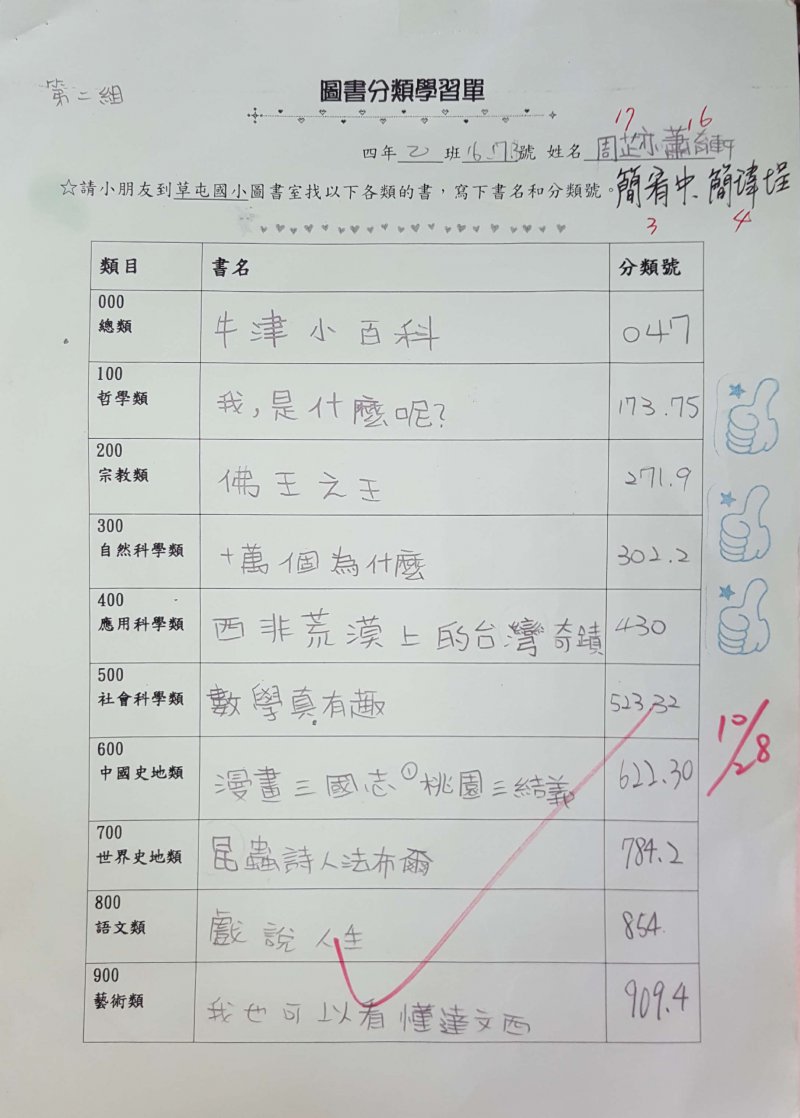 第二組
圖書分類學習單
17 16
四年乙班16.17.3號 姓名周芷亦蕭奇軒
☆請小朋友到草屯國小圖書室找以下各類的書,寫下書名和分類號。
簡宥中、簡瑋埕
3 4
類目 書名 分類號
000
總類 牛津小百科 047
100
哲學類 我,是什麼呢? 173.75
200
宗教類 佛王之王 271.9
300
自然科學類 十萬個為什麼 302.2
400
應用科學類 西非荒漠上的台灣奇蹟 430
500
社會科學類 數學真有趣 523.32
600
中國史地類 漫畫三國志①桃園三結義 622.30
700
世界史地類 昆蟲詩人法布爾 784.2
800
語文類 戲說人生 854.
900
藝術類 我也可以看懂達文西 909.4
10/28